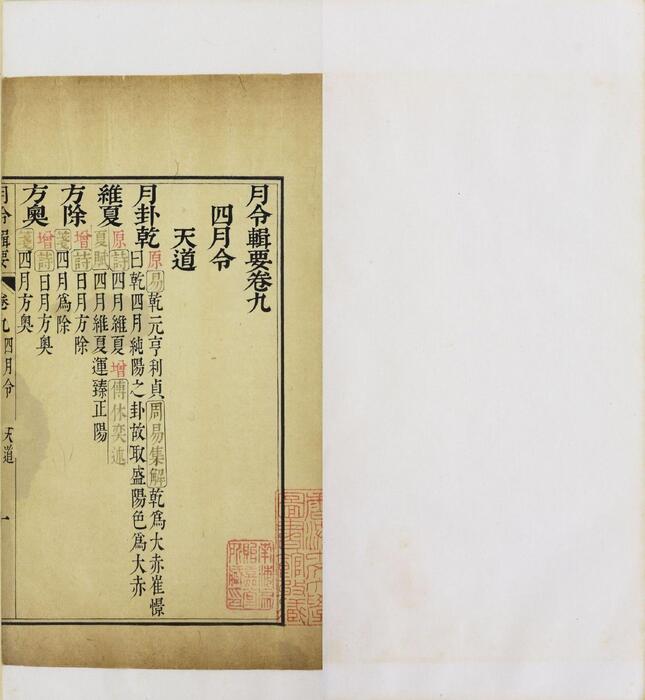 月令輯要卷九
四月令
天道
月卦乾
原易乾元亨利貞周易集解乾爲大赤崔憬
曰乾四月純陽之卦故取盛陽色爲大赤
維夏
原詩四月維夏增傅休奕述
夏賦四月維夏運臻正陽
方除
增詩日月方除
箋四月爲除
方奧
增詩日月方奧
箋四月方奧
月令輯要
卷九四月令
天道
一